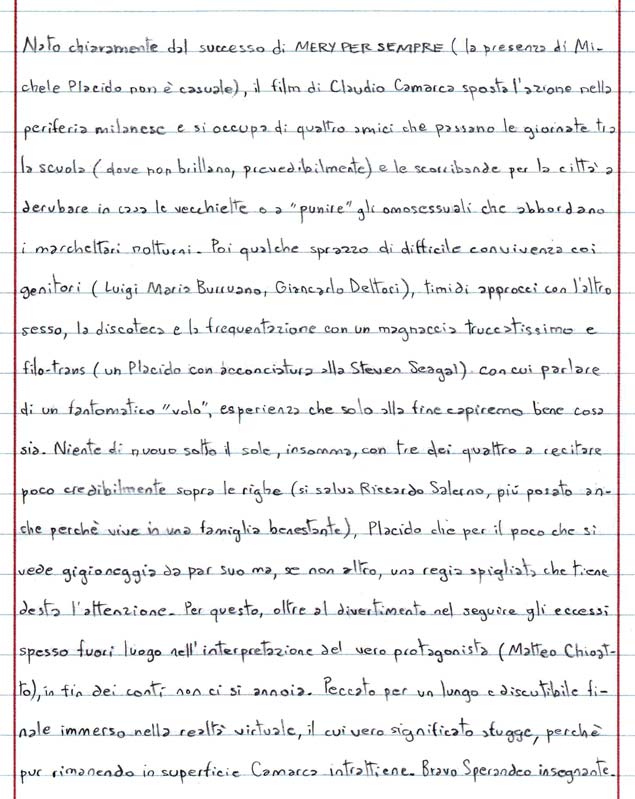 Nato chiaramente dal successo di MERY PER SEMPRE (la presenza di Mi-
chele Placido non è casuale), il film di Claudio Camarca sposta l'azione nella
periferia milanese e si occupa di quattro amici che passano le giornate tra
la scuola (dove non brillano, prevedibilmente) e le scorribande per la città a
derubare in casa le vecchiette o a "punire" gli omosessuali che abbordano
i marchettari notturni. Poi qualche sprazzo di difficile convivenza coi
genitori (Luigi Maria Burruano, Giancarlo Dettori), timidi approcci con l'altro
sesso, la discoteca e la frequentazione con un magnaccia truccatissimo e
filo-trans (un Placido con acconciatura alla Steven Seagal) con cui parlare
di un fantomatico "volo", esperienza che solo alla fine capiremo bene cosa
sia. Niente di nuovo sotto il sole, insomma, con tre dei quattro a recitare
poco credibilmente sopra le righe (si salva Riccardo Salerno, più posato an-
che perchè vive in una famiglia benestante), Placido che per il poco che si
vede gigioneggia da par suo ma, se non altro, una regia spigliata che tiene
desta l'attenzione. Per questo, oltre al divertimento nel seguire gli eccessi
spesso fuori luogo nell'interpretazione del vero protagonista (Matteo Chioat-
to), in fin dei conti non ci si annoia. Peccato per un lungo e discutibile fi-
nale immerso nella realtà virtuale, il cui vero significato sfugge, perchè
pur rimanendo in superficie Camarca intrattiene. Bravo Sperandeo insegnante.